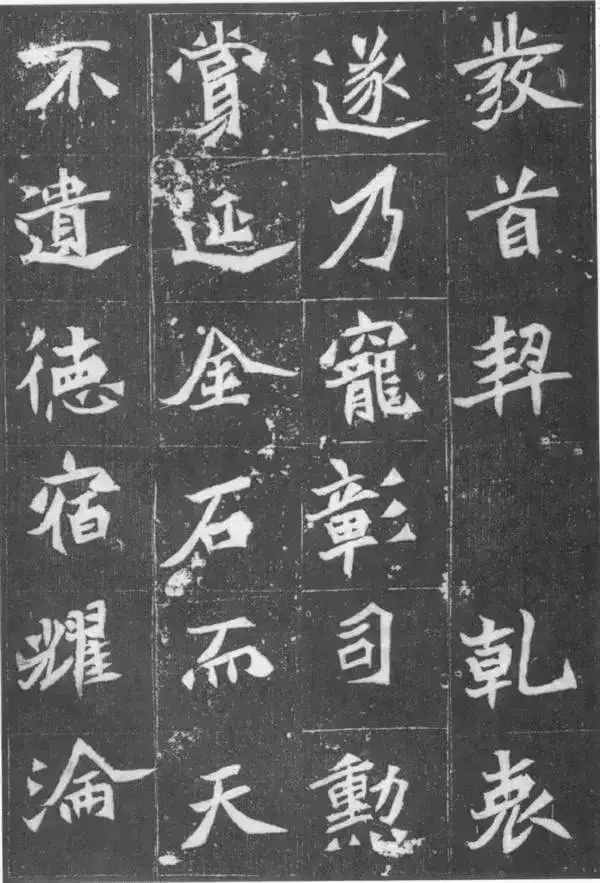 發首契 乾衷
遂乃寵彰司勳
賞延金石而天
不遺德宿耀淪